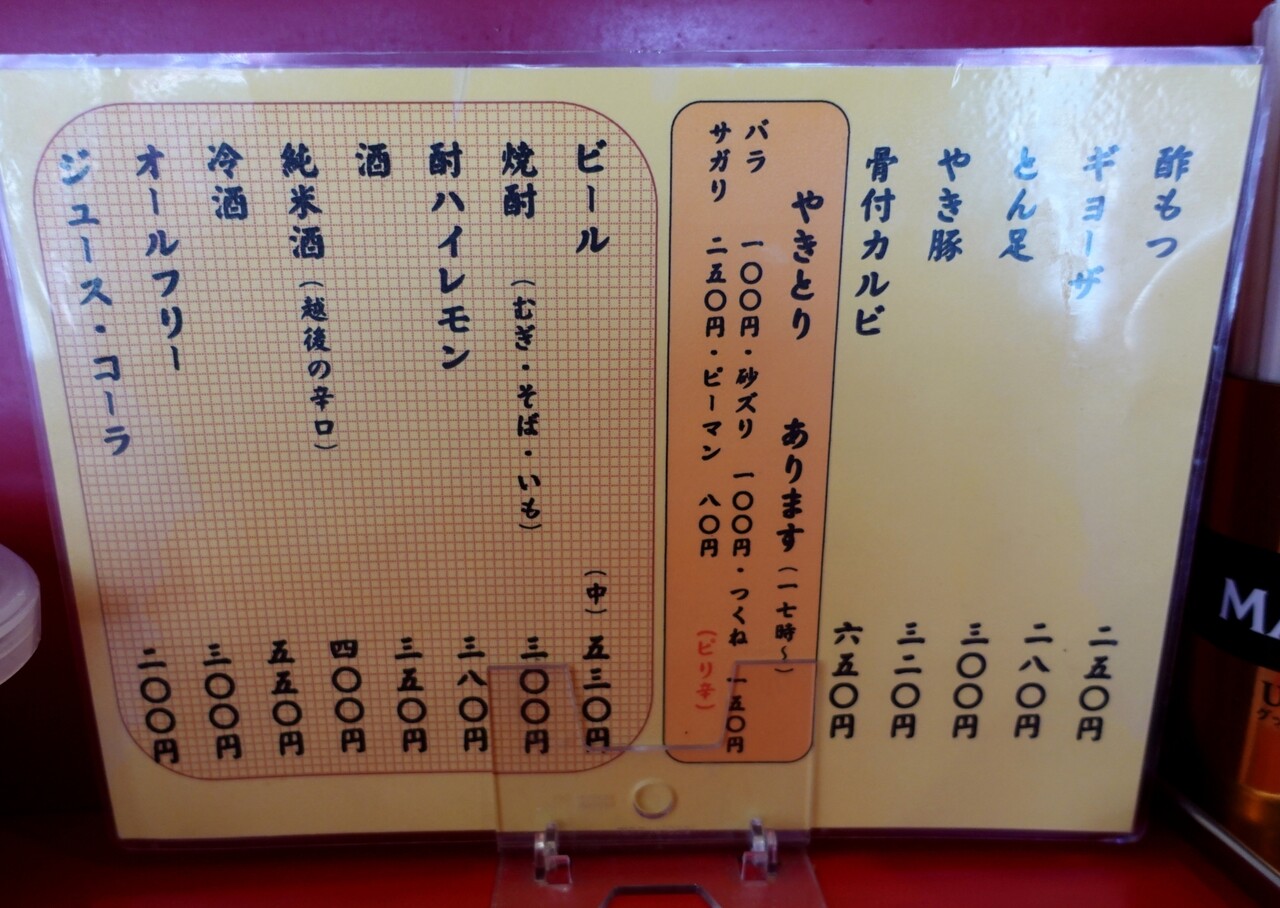 酢もつ 二五〇円
ギョーザ 二八〇円
とん足 三〇〇円
やき豚 三二〇円
骨付カルビ 六五〇円
やきとり あります(一七時~)
バラ 一〇〇円・砂ズリ 一〇〇円・つくね 一五〇円
サガリ 二五〇円・ピーマン 八〇円 (ピリ辛)
ビール (中) 五三〇円
焼酎 (むぎ・そば・いも) 三〇〇円
酎ハイレモン 三八〇円
酒 三五〇円
純米酒 (越後の辛口) 四〇〇円
冷酒 五五〇円
オールフリー 三〇〇円
ジュース・コーラ 二〇〇円